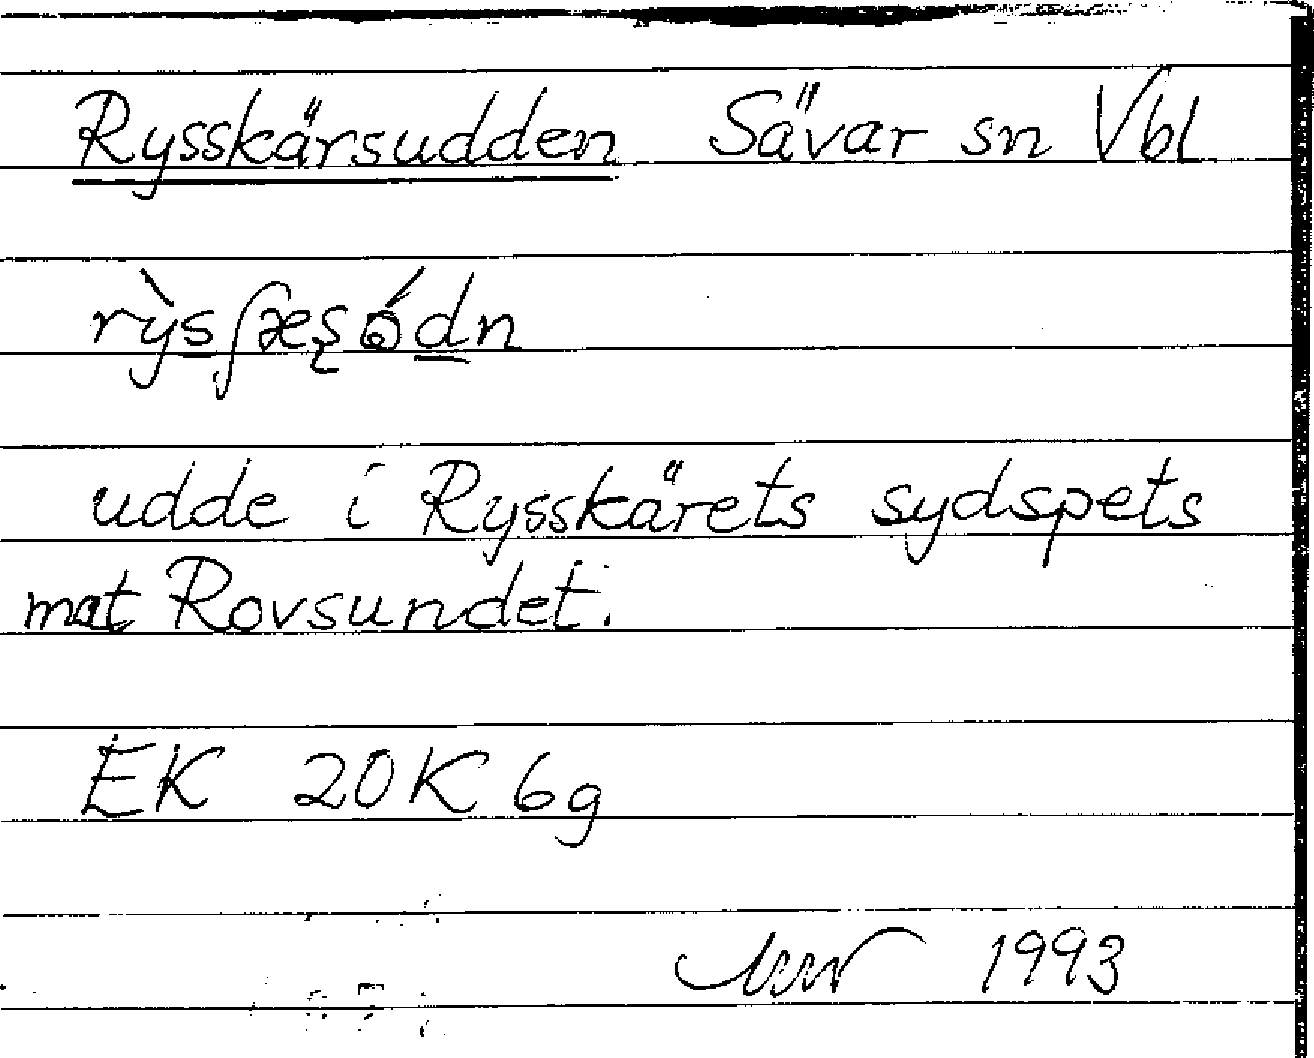 Rysskärsudden Sävar sn Vbl
rỳsʃæʂɷ́dn
udde i Rysskärets sydspets
mot Rovsundet.
EK 20K 6g
1993